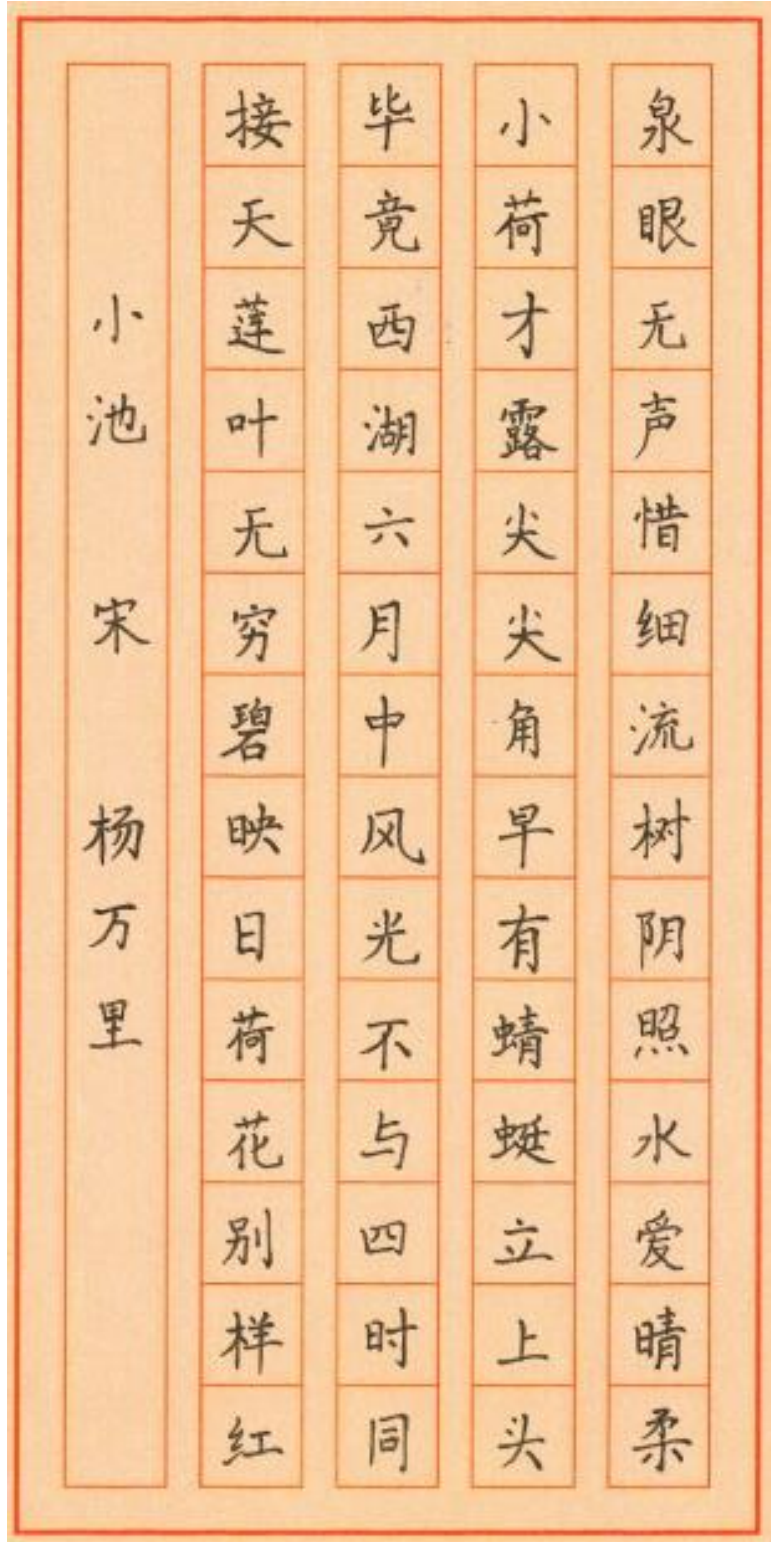 泉眼无声惜细流树阴照水爱晴柔
小荷才露尖尖角早有蜻蜓立上头
毕竟西湖六月中风光不与四时同
接天莲叶无穷碧映日荷花别样红
小池 宋 杨万里